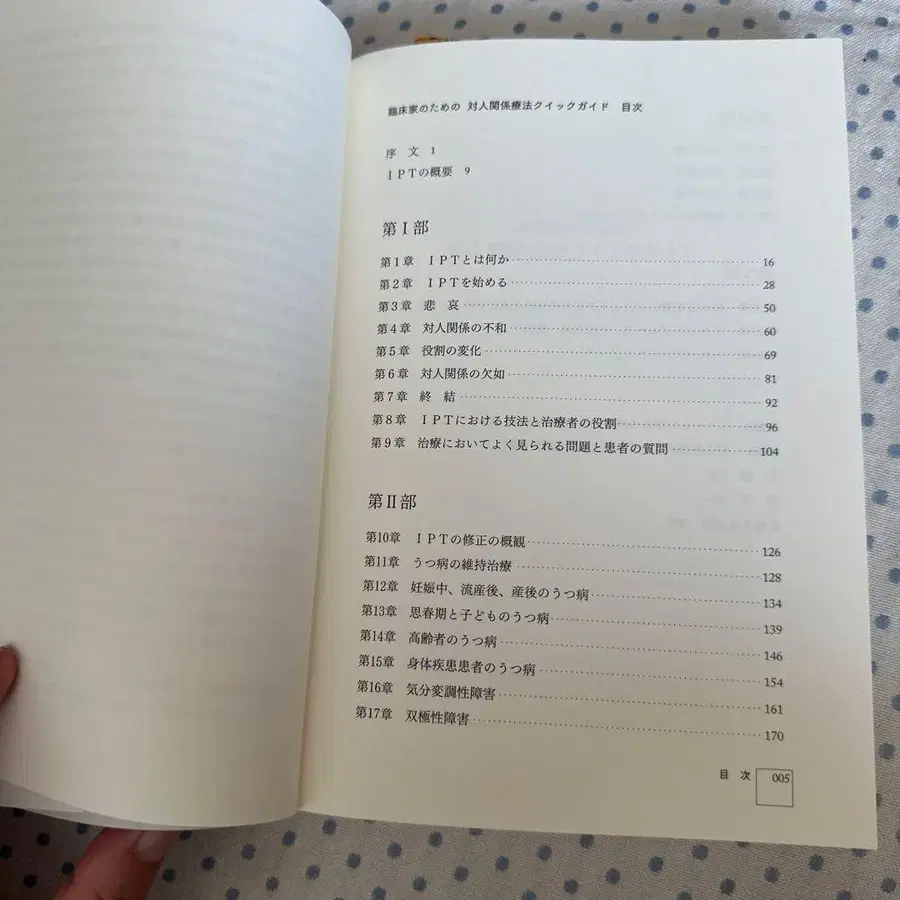 臨床家のための 対人関係療法クイックガイド 目次
序 文 1
ＩＰＴの概要 9
第Ⅰ部
第1章 ＩＰＴとは何か 16
第2章 ＩＰＴを始める 28
第3章 悲 哀 50
第4章 対人関係の不和 60
第5章 役割の変化 69
第6章 対人関係の欠如 81
第7章 終 結 92
第8章 ＩＰＴにおける技法と治療者の役割 96
第9章 治療においてよく見られる問題と患者の質問 104
第Ⅱ部
第10章 ＩＰＴの修正の概観 126
第11章 うつ病の維持治療 128
第12章 妊娠中、流産後、産後のうつ病 134
第13章 思春期と子どものうつ病 139
第14章 高齢者のうつ病 146
第15章 身体疾患患者のうつ病 154
第16章 気分変調性障害 161
第17章 双極性障害 170
目 次 005